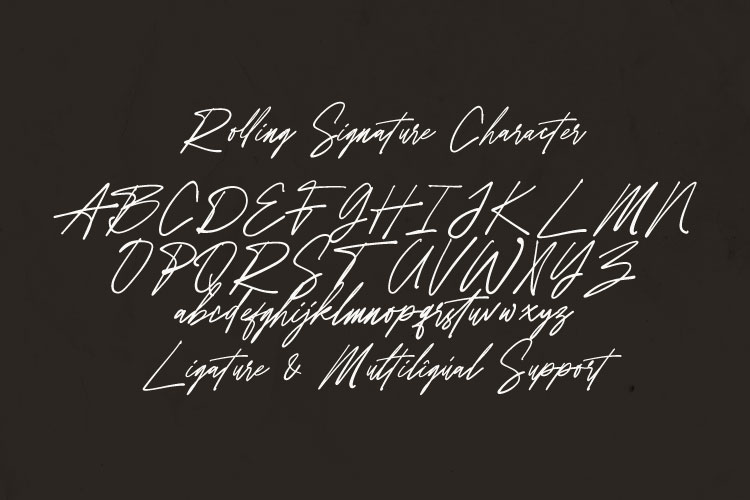 Rolling Signature Character
ABCDEFGHIJKLMN
OPQRSTUVWXYZ
abcdefghijklmnopqrstuvwxyz
Ligature & Multilîgúal Support